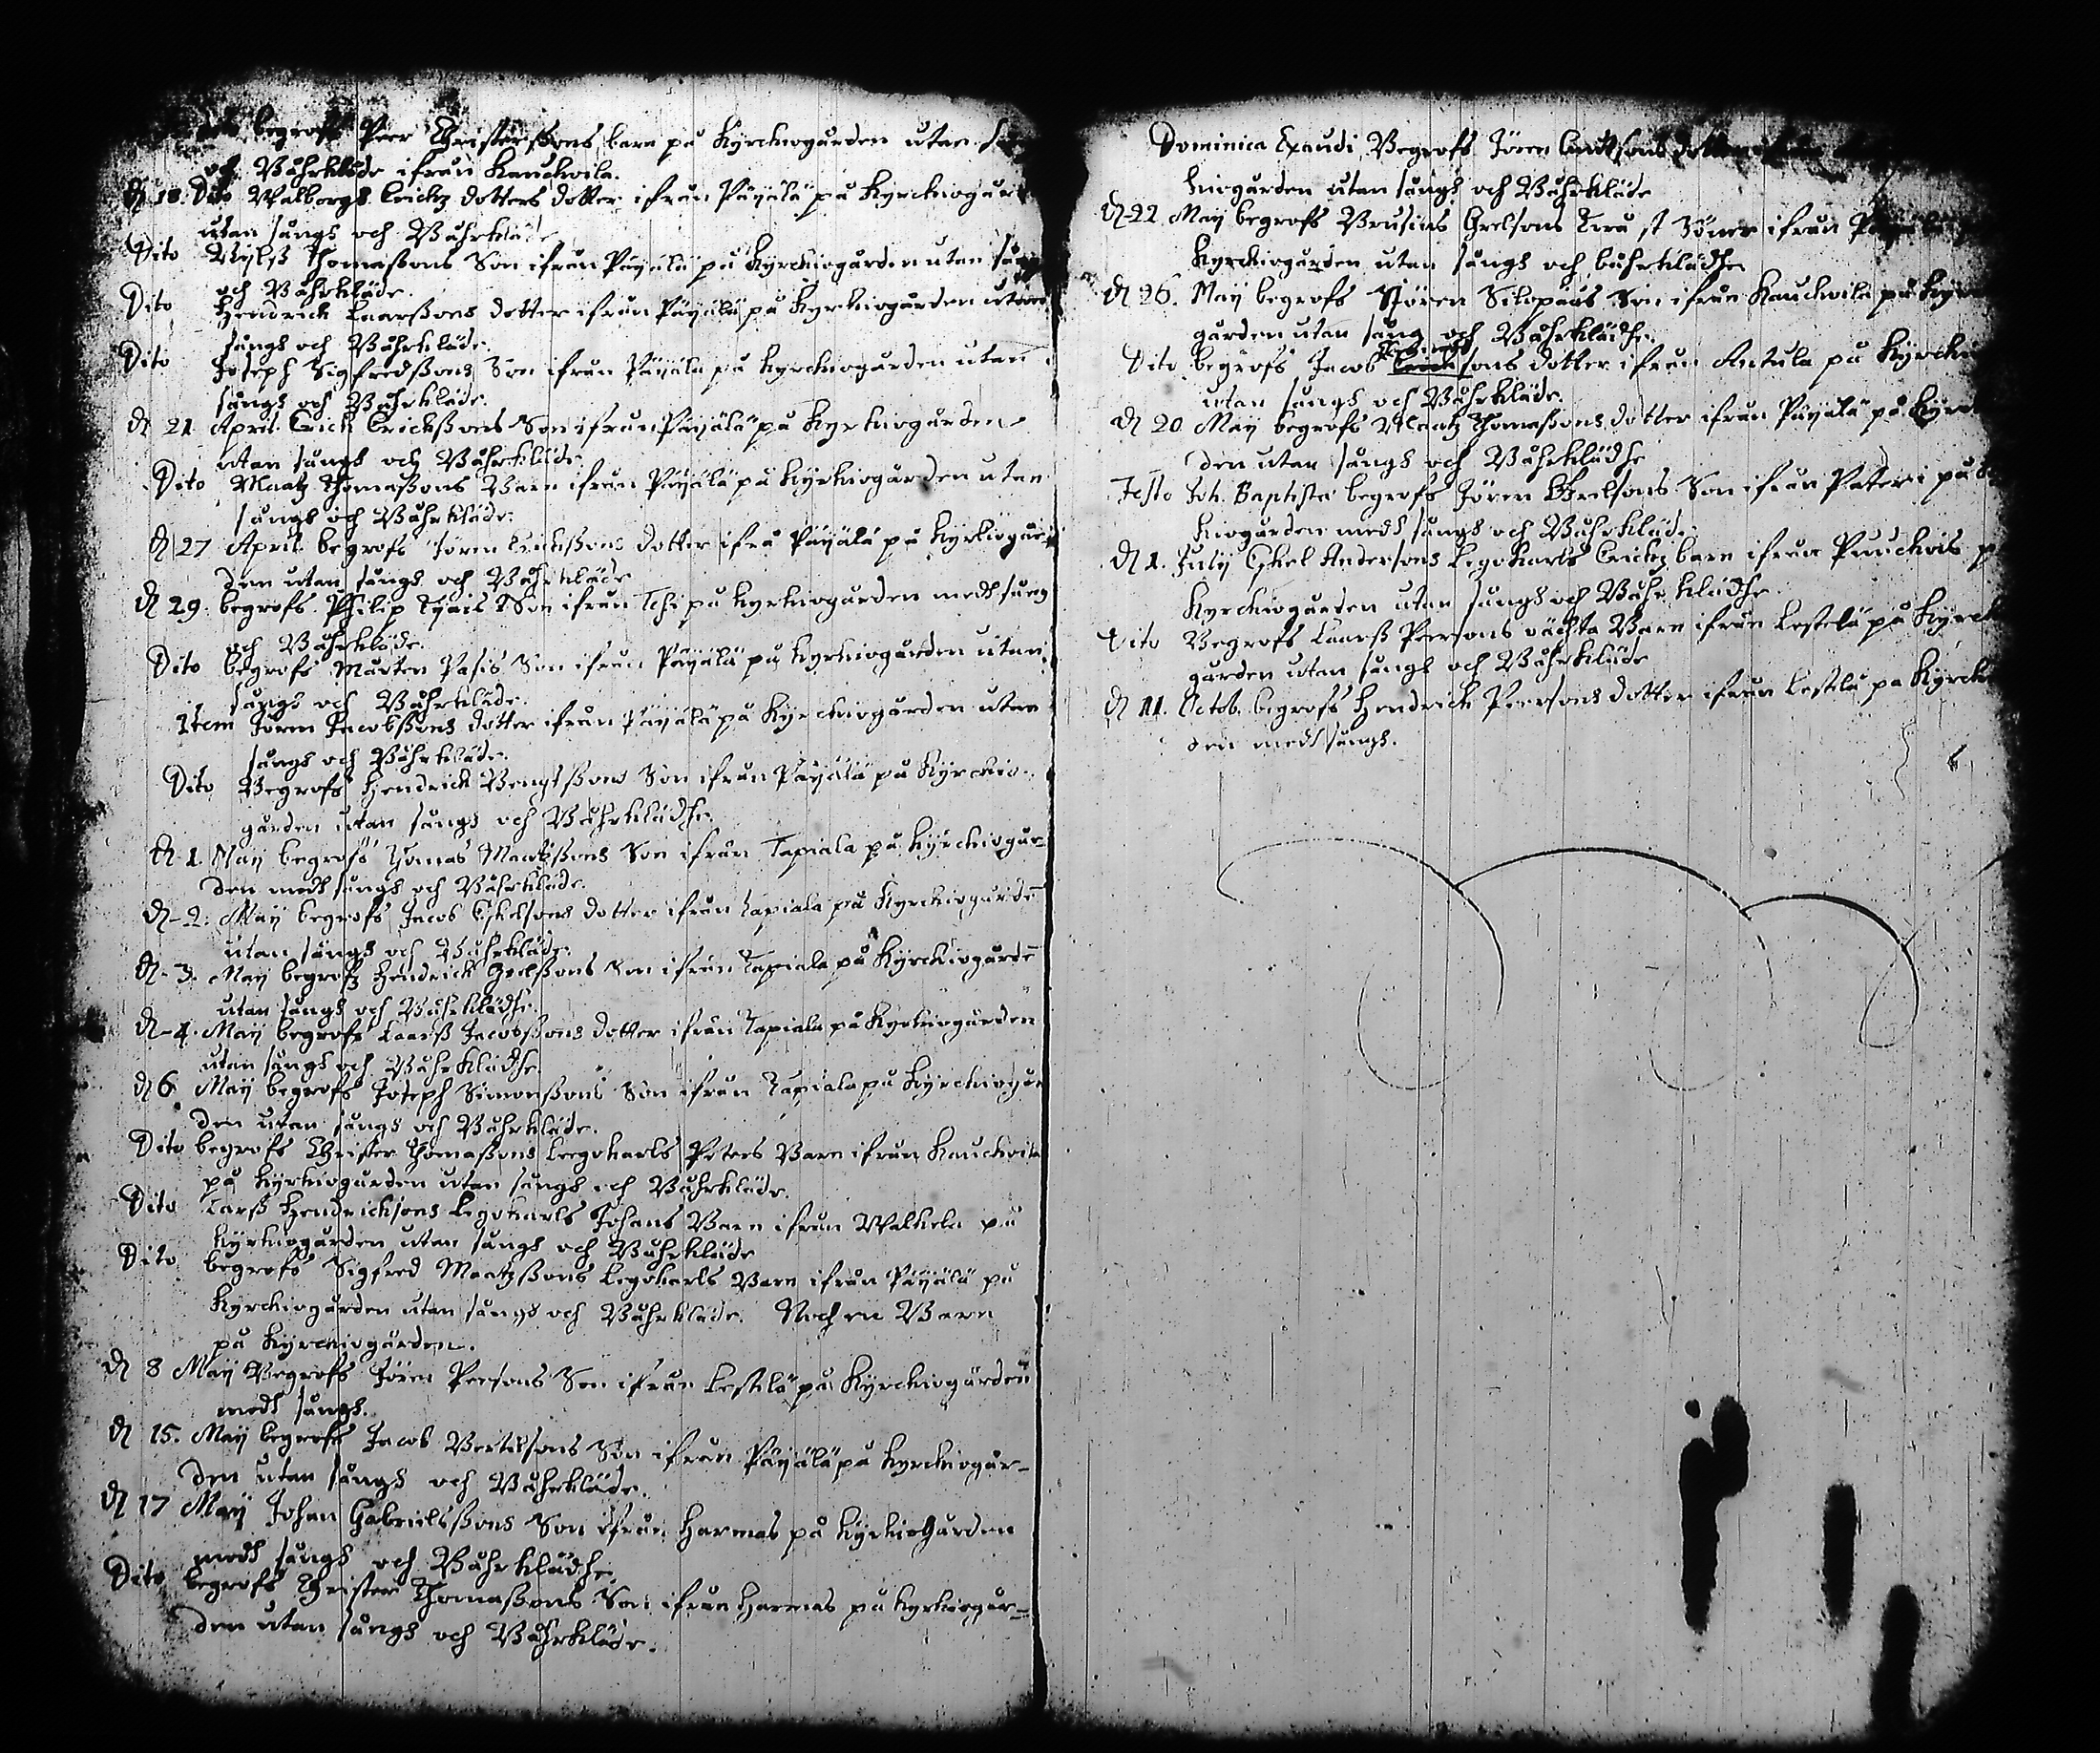 begrofs Peer Christerßons barn på Kyrckiogården utan
och Båhrkläde ifrån Kauckoila.
dn 18. Dito Walborgs Erickz dotters dotter ifrån Päyälä på Kyrckiogår
utan sångs och Båhrkläde
Dito Nylß Thomaßons Son ifrån Päyälä på Kyrckiogården utan sång
och Båhrkläde.
Dito Hendrich Laarßons dotter ifrån Päyälä på Kyrkiogården utan
sångs och Båhrkläde.
Dito Joseph Sigfredßons Son ifrån Päyälä på Kyrckiogården utan
sångs och Båhrkläde.
dn 21 April Erich Erickßons Son ifrån Päyälä på Kyrkiogården
utan sångs och Båhrkläde
Dito Maatz Thomaßons Barn ifrån Päyälä på Kyrkiogården utan
sångs och Båhrkläde.
dn 27 April begrofs Jören Erickßons dotter ifrå Päyälä på Kyrkiogår
den utan sångs och Båhrkläde
dn 29. begrofs Philip Son ifrån på Kyrkiogården medh sång
och Båhrkläde.
Dito begrofs Mårten Pasis Son ifrån Päyälä på Kyrkiogården utan
sångs och Båhrkläde.
Item Jören Jacobßons dotter ifrån Päyälä på Kyrckiogården utan
sångs och Båhrkläde.
Dito Begrofs Hendrich Bengtßons Son ifrån Päyälä på Kyrckio-
gården utan sångs och Båhrklädhe.
dn 1. May begrofs Thomas Maatzßons Son ifrån Tapiala på Kyrckiogår-
den medh sångs och Båhrkläde.
dn - 2. May begrofs Jacob Eskelsons dotter ifrån Tapiala på Kyrckiogårdē
utan sångs och Båhrkläde.
dn - 3. May begrofs Hendrich Grelßons Son ifrån Tapiala på Kyrckiogårdē
utan sångs och Båhrklädhe.
dn - 4. May begrofs Laarß Jacobßons dotter ifrån Tapiala på Kyrkiogården
utan sångs och Båhrklädhe
dn 6. May begrofs Joseph Simonßons Son ifrån Tapiala på Kyrckiogår
den utan sångs och Båhrkläde.
Dito begrofs Christer Thomaßons Legokarls Peters Barn ifrån Kauckoila
på Kyrkiogården utan sångs och Båhrkläde.
Dito Larß Hendricksons Legokarls Johans Barn ifrån Walkela på
Kyrkiogården utan sångs och Båhrkläde
Dito begrofs Sigfred Maatzßons Legokarls Barn ifrån Päyälä på
Kyrckiogården utan sångs och Båhrkläde. Noch en Barn
på Kyrckiogården.
dn 8 May Begrofs Jören Persons Son ifrån Lestilä på Kyrckiogården
medh sångs.
dn 15. May begrofs Jacob Bertilsons Son ifrån Päyälä på Kyrckiogår-
den utan sångs och Båhrkläde.
dn 17 May Johan Gabrielsßons Son ifrån Harmas på Kyrkiogården
medh sångs och Båhrklädhe
Dito begrofs Christer Thomaßons Son ifrån Harmas på Kyrkiogår-
den utan sångs och Båhrkläde.
Dominica Exaudi Begrofs Jören dotter
kiogården utan sångs och Båhrkläde
dn - 22. May begrofs Brusius Grelsons Söner ifrån Päyälä
Kyrckiogården utan sångs och båhrklädhe
dn 26. May begrofs Sören Son ifrån Kauckoila på Kyr
gården utan sång och Båhrklädhe.
Dito begrofs Jacob sons dotter ifrån Antula på Kyrcki
utan sångs och Båhrkläde.
dn 20 May begrofs Maatz Thomaßons dotter ifrån Päyälä på Kyrc
den utan sångs och Båhrklädhe
Festo Joh. Baptistæ begrofs Jören Grelsons Son ifrån på
kiogården medh sångs och Båhrkläde.
dn 1. July Eskel Andersons Legokarls Erickz barn ifrån p
Kyrckiogården utan sångs och Båhrklädhe.
Dito Begrofs Laarß Persons Barn ifrån Lestelä på Kyrck
gården utan sångs och Båhrkläde
dn 11. Octob. begrofs Hendrich Peersons dotter ifrån Lestilä på Kyrcki
den medh sångs.